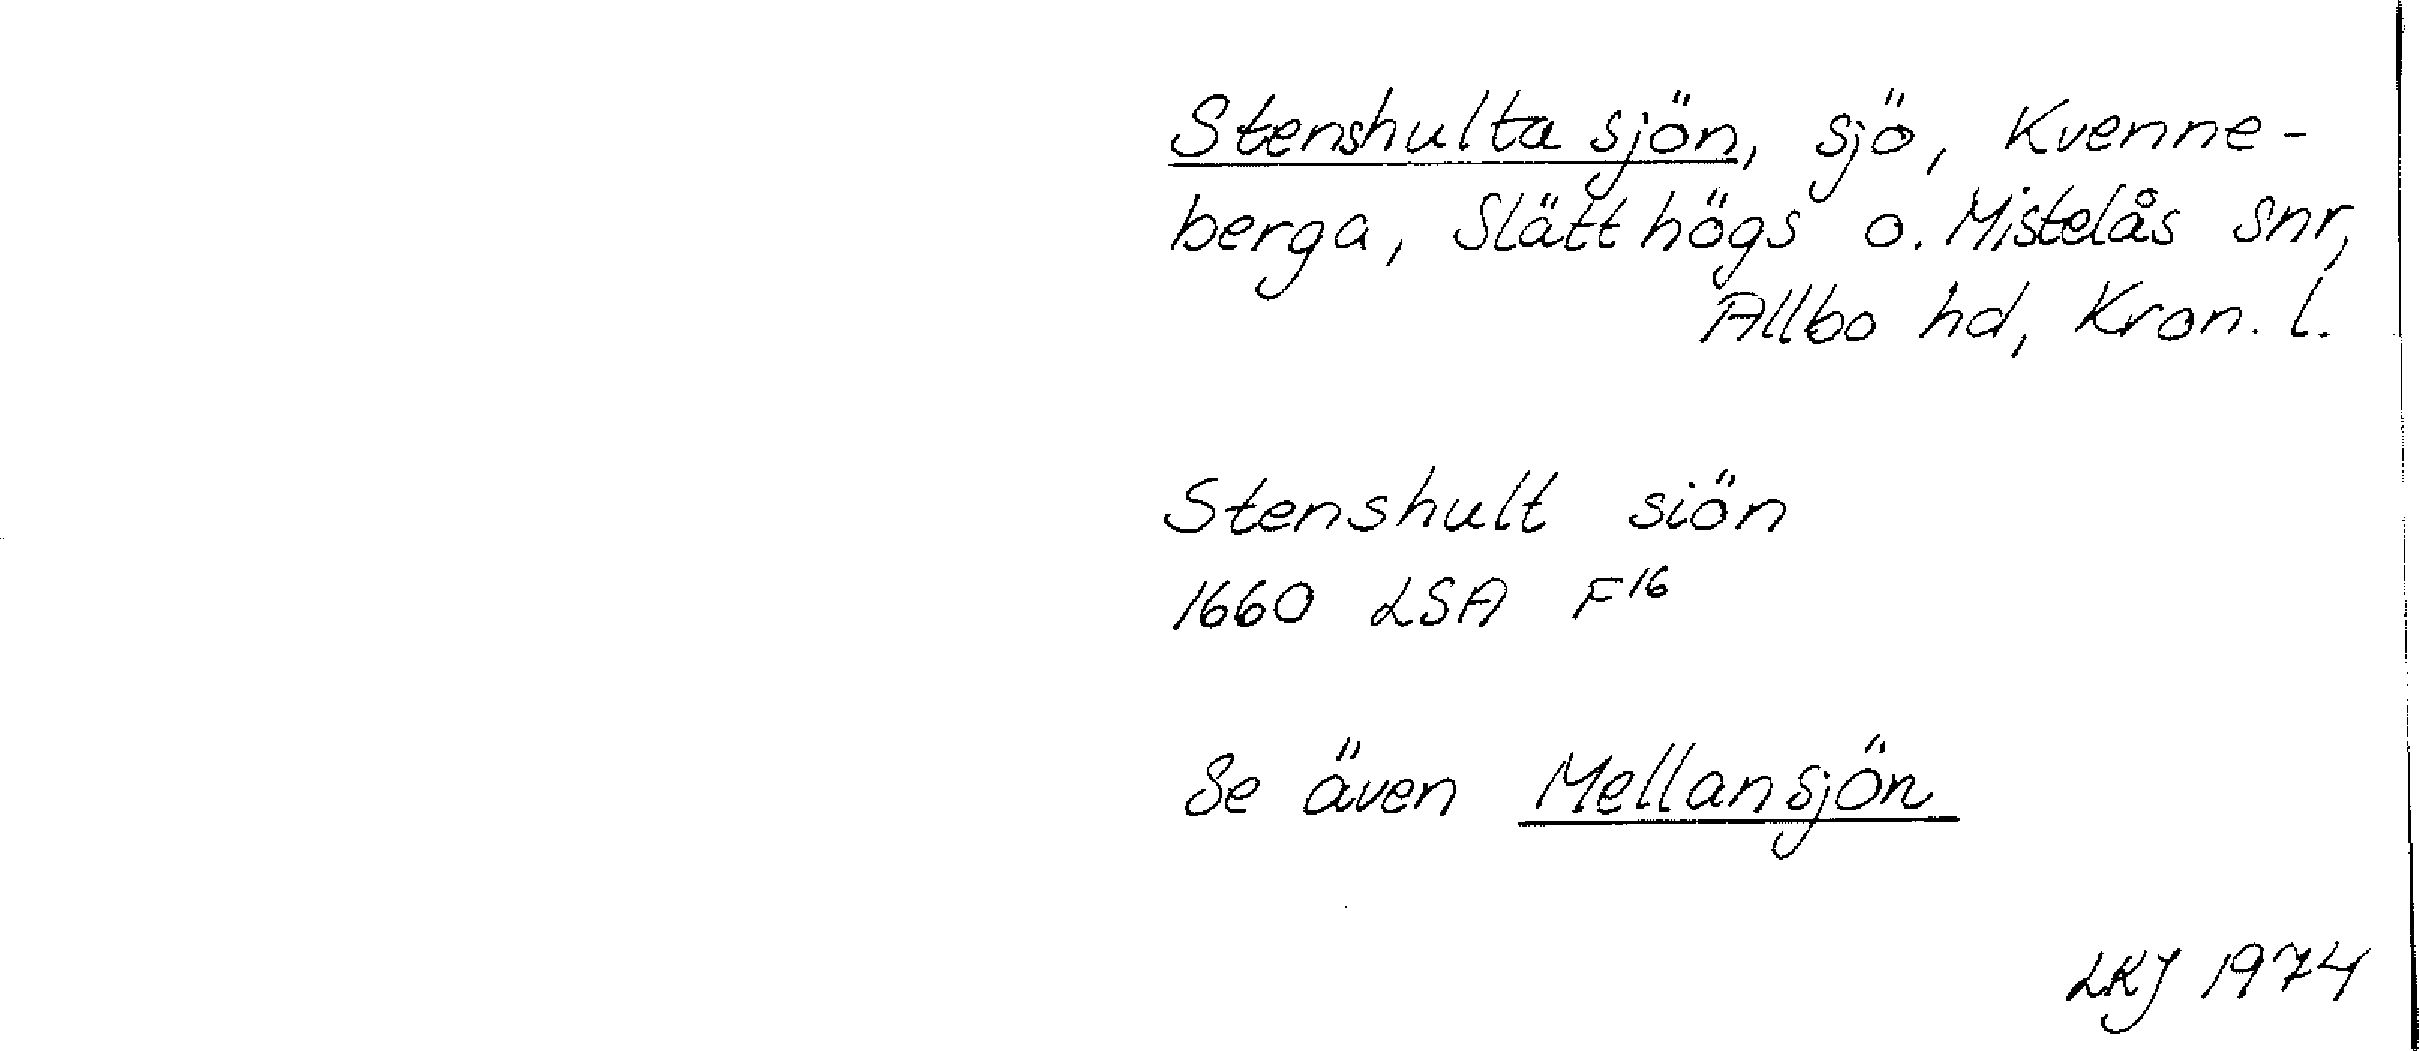 Stenshulta sjön, sjö, Kvenne-
berga, Slätthögs o. Mistelås snr,
Allbo hd, Kron. l.
Stenshult siön
1660 LSA F16
Se även Mellansjön
LKJ 1974